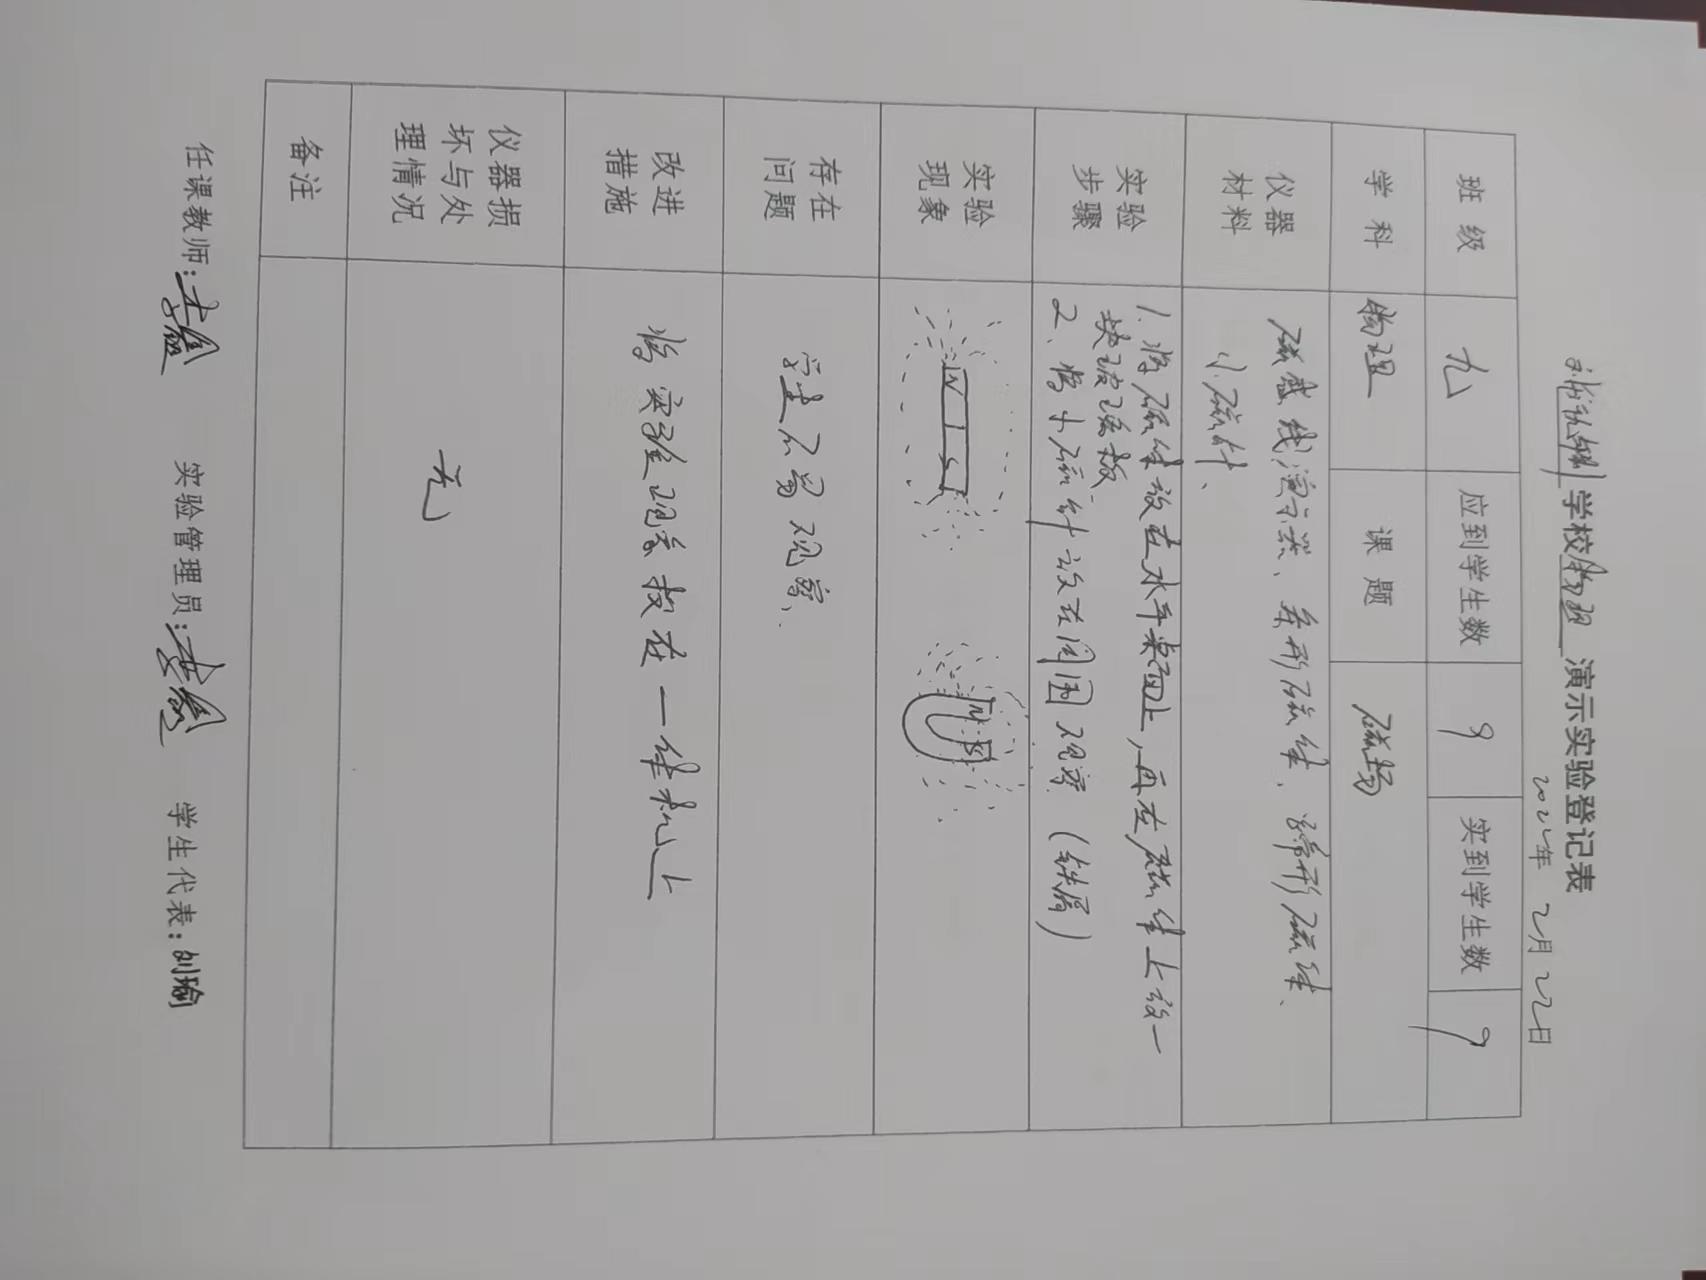 学校物理演示实验登记表
2022年 2月 22日
班 级 九 应到学生数 9 实到学生数 9
学 科 物理 课 题 磁场
仪器材料 磁感线演示器、条形磁体、蹄形磁体、
小磁针、
实验步骤 1. 将磁体放在水平桌面上,再在磁体上放一
块玻璃板.
2、将小磁针放在周围观察(铁屑)
实验现象 N S N S
存在问题 学生不易观察、
改进措施 将实验现象投在一体机上
仪器损坏与处理情况 无
备注
任课教师: 实验管理员: 学生代表:刘瑜